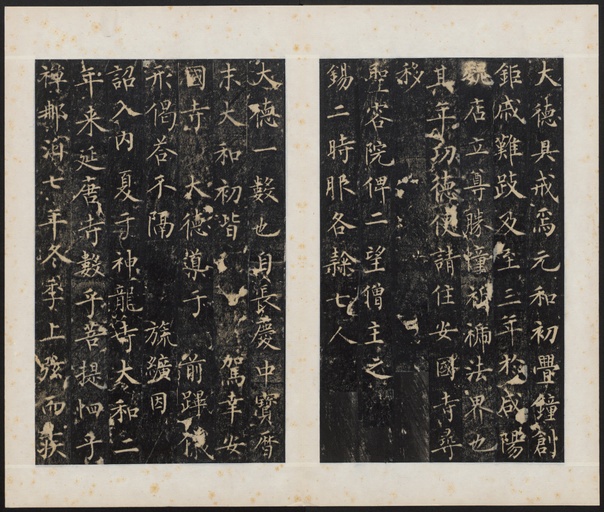 大德具戒焉元和初疊鐘創
鉅戚難跂及至三年於咸陽
魏店立尊勝幢福法界也
其年功德使請住安國寺尋
移
聖容院俾二望僧主之
錫二時服各隸七人
大德一數也自長慶中寶曆
末大和初皆 駕幸安
國寺 大德導于 前蹕儀
形偈答不隔 旒纊因
詔入內夏于神龍寺大和二
年來延唐寺數乎菩提恤乎
禪那洎七年冬季上弦而疾